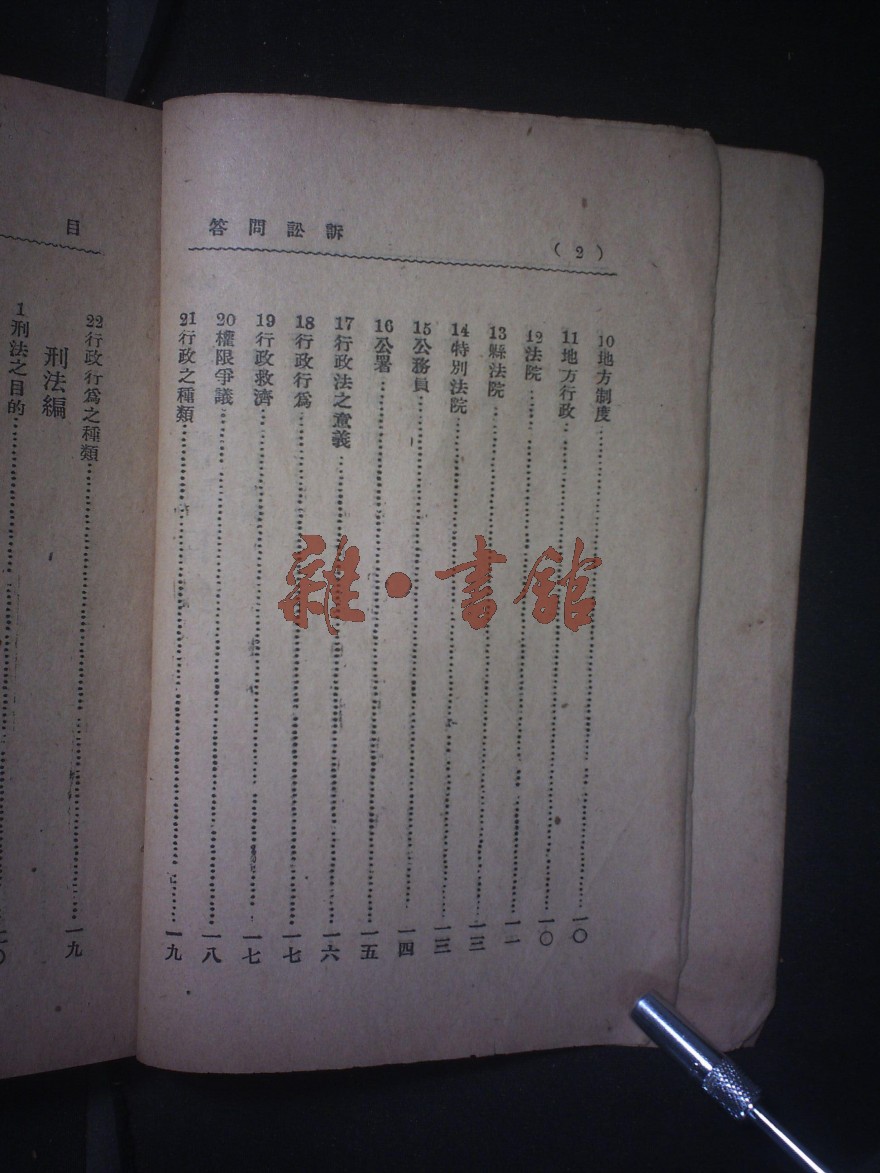 訴訟問答
(2)
10地方制度……一〇
11地方行政……一〇
12法院……一一
13縣法院……一三
14特別法院……一三
15公務員……一四
16公署……一五
17行政法之意義……一六
18行政行爲……一七
19行政救濟……一七
20權限爭議……一八
21行政之種類……一九
目
22行政行爲之種類……一九
刑法編
1刑法之目的……二〇
雜·書館